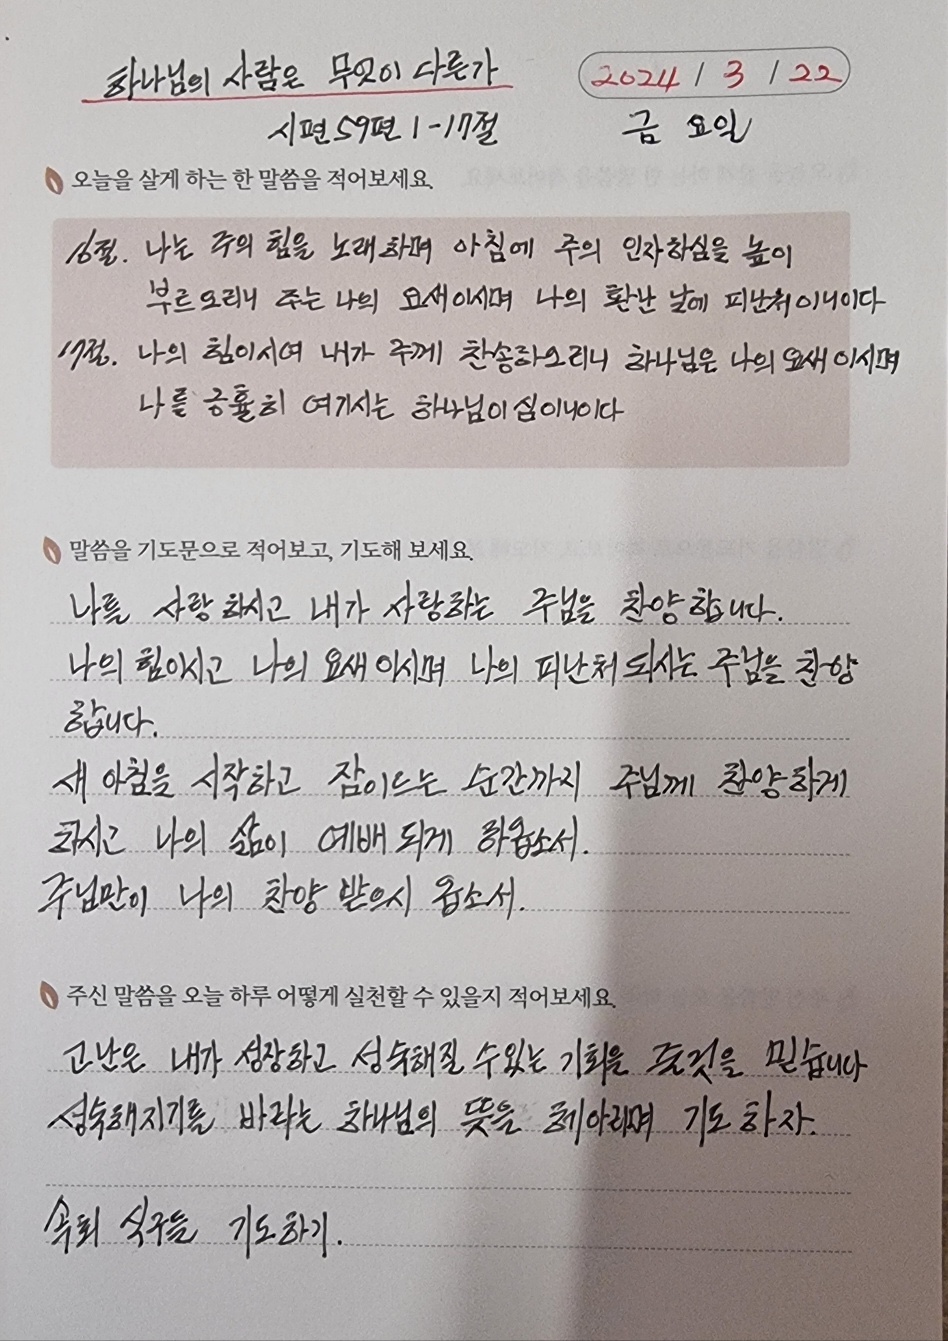 하나님의 사람은 무엇이 다른가
2024 / 3 / 22
시편 59편 1-17절
금 요일
오늘을 살게 하는 한 말씀을 적어보세요.
16절. 나는 주의 힘을 노래하며 아침에 주의 인자하심을 높이
부르오리니 주는 나의 요새이시며 나의 환난 날에 피난처이니이다
17절. 나의 힘이시여 내가 주께 찬송하오리니 하나님은 나의 요새이시며
나를 긍휼히 여기시는 하나님이심이니이다
말씀을 기도문으로 적어보고, 기도해 보세요.
나를 사랑하시고 내가 사랑하는 주님을 찬양합니다.
나의 힘이시고 나의 요새이시며 나의 피난처 되시는 주님을 찬양
합니다.
새 아침을 시작하고 잠이드는 순간까지 주님께 찬양하게
하시고 나의 삶이 예배 되게 하옵소서.
주님만이 나의 찬양 받으시 옵소서.
주신 말씀을 오늘 하루 어떻게 실천할 수 있을지 적어보세요.
고난은 내가 성장하고 성숙해질 수있는 기회을 준것을 믿습니다
성숙해지기를 바라는 하나님의 뜻을 헤아리며 기도하자.
속회 식구들 기도하기.